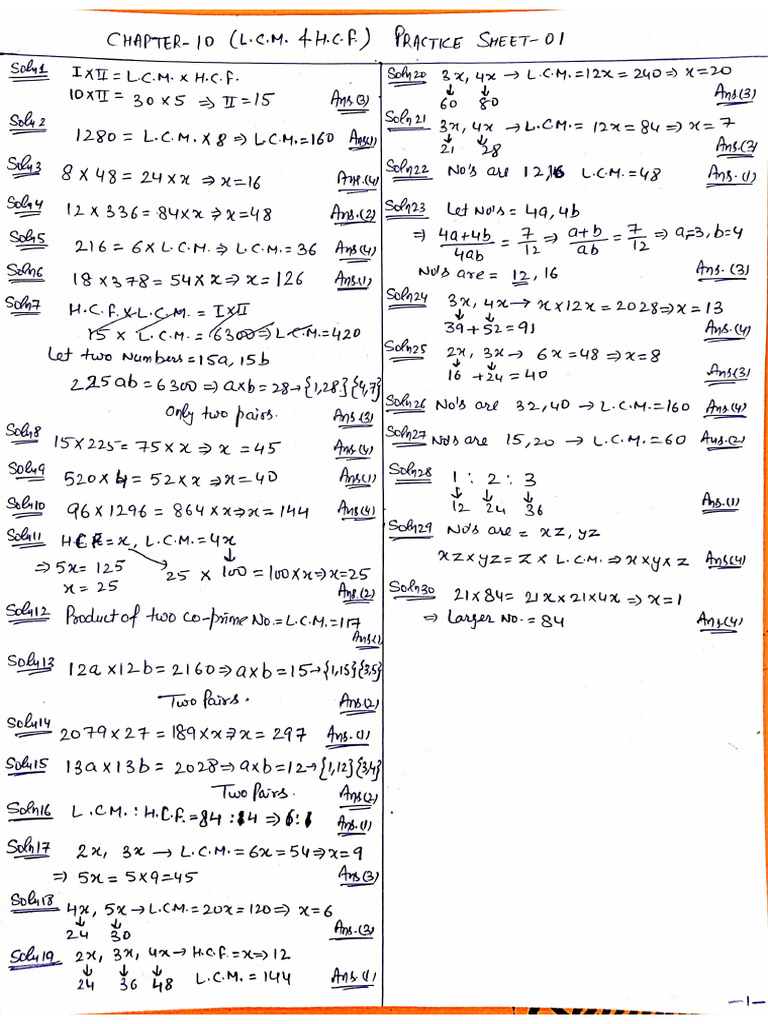 CHAPTER-10 (L.C.M. & H.C.F.) PRACTICE SHEET-01
Soln1 I×II = L.C.M. × H.C.F.
10×II = 30×5 ⇒ II = 15 Ans(3)
Soln2
1280 = L.C.M. × 8 ⇒ L.C.M. = 160 Ans(1)
Soln3 8×48 = 24×x ⇒ x=16 Ans.(4)
Soln4 12×336 = 84×x ⇒ x=48 Ans.(2)
Soln5 216 = 6×L.C.M. ⇒ L.C.M. = 36 Ans(4)
Soln6 18×378 = 54×x ⇒ x=126 Ans(1)
Soln7 H.C.F. × L.C.M. = I×II
15 × L.C.M. = 6300 ⇒ L.C.M. = 420
Let two numbers = 15a, 15b
225ab = 6300 ⇒ a×b = 28 → {1,28} {4,7}
Only two pairs. Ans(3)
Soln8 15×225 = 75×x ⇒ x = 45 Ans(4)
Soln9 520×4 = 52×x ⇒ x = 40 Ans(1)
Soln10 96×1296 = 864×x ⇒ x = 144 Ans(4)
Soln11 H.C.F. = x, L.C.M. = 4x
⇒ 5x = 125 25 × 100 = 100×x ⇒ x=25
x = 25 Ans.(2)
Soln12 Product of two co-prime No. = L.C.M. = 117
Ans(1)
Soln13 12a×12b = 2160 ⇒ a×b = 15 → {1,15} {3,5}
Two Pairs. Ans(2)
Soln14 2079×27 = 189×x ⇒ x = 297 Ans.(1)
Soln15 13a×13b = 2028 ⇒ a×b = 12 → {1,12} {3,4}
Two Pairs. Ans(2)
Soln16 L.C.M. : H.C.F. = 84 : 14 ⇒ 6:1 Ans(1)
Soln17 2x, 3x → L.C.M. = 6x = 54 ⇒ x=9
⇒ 5x = 5×9 = 45 Ans(3)
Soln18 4x, 5x → L.C.M. = 20x = 120 ⇒ x=6
24 30 Ans.(3)
Soln19 2x, 3x, 4x → H.C.F. = x ⇒ 12
24 36 48 L.C.M. = 144 Ans.(1)
Soln20 3x, 4x → L.C.M. = 12x = 240 ⇒ x=20
60 80 Ans(3)
Soln21 3x, 4x → L.C.M. = 12x = 84 ⇒ x=7
21 28 Ans(3)
Soln22 No's are 12,16 L.C.M. = 48 Ans.(1)
Soln23 Let No's = 4a, 4b
⇒ 4a+4b/4ab = 7/12 ⇒ a+b/ab = 7/12 ⇒ a=3, b=4
No's are = 12, 16 Ans.(3)
Soln24 3x, 4x → x×12x = 2028 ⇒ x = 13
39+52 = 91 Ans(4)
Soln25 2x, 3x → 6x = 48 ⇒ x=8
16 +24 = 40 Ans(3)
Soln26 No's are 32,40 → L.C.M. = 160 Ans(4)
Soln27 No's are 15,20 → L.C.M. = 60 Ans.(2)
Soln28 1 : 2 : 3
12 24 36 Ans.(1)
Soln29 No's are = xz, yz
xz×yz = z × L.C.M. ⇒ x×y×z Ans(4)
Soln30 21×84 = 21x×21×4x ⇒ x=1
⇒ Larger No. = 84 Ans(4)
-1-